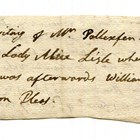 iting of Mr. Pollexfen
Lady Alice Lisle whe
was afterwards William
on Pleas.